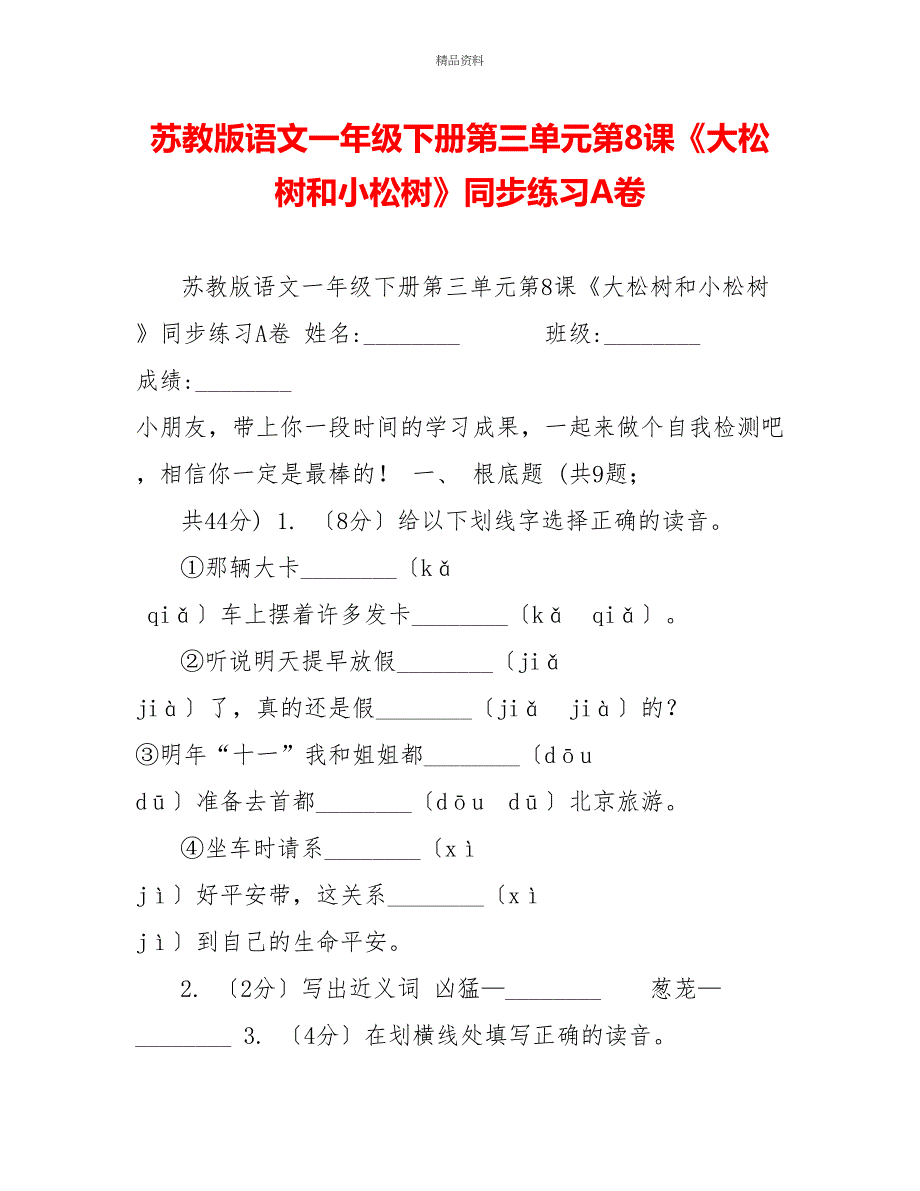 精品资料
苏教版语文一年级下册第三单元第8课《大松
树和小松树》同步练习A卷
苏教版语文一年级下册第三单元第8课《大松树和小松树
》同步练习A卷 姓名:________ 班级:________
成绩:________
小朋友，带上你一段时间的学习成果，一起来做个自我检测吧
，相信你一定是最棒的！ 一、 根底题 (共9题；
共44分) 1. 〔8分〕给以下划线字选择正确的读音。
①那辆大卡________〔kǎ
qiǎ〕车上摆着许多发卡________〔kǎ qiǎ〕。
②听说明天提早放假________〔jiǎ
jià〕了，真的还是假________〔jiǎ jià〕的？
③明年“十一”我和姐姐都________〔dōu
dū〕准备去首都________〔dōu dū〕北京旅游。
④坐车时请系________〔xì
jì〕好平安带，这关系________〔xì
jì〕到自己的生命平安。
2. 〔2分〕写出近义词 凶猛—________ 葱茏—
________ 3. 〔4分〕在划横线处填写正确的读音。